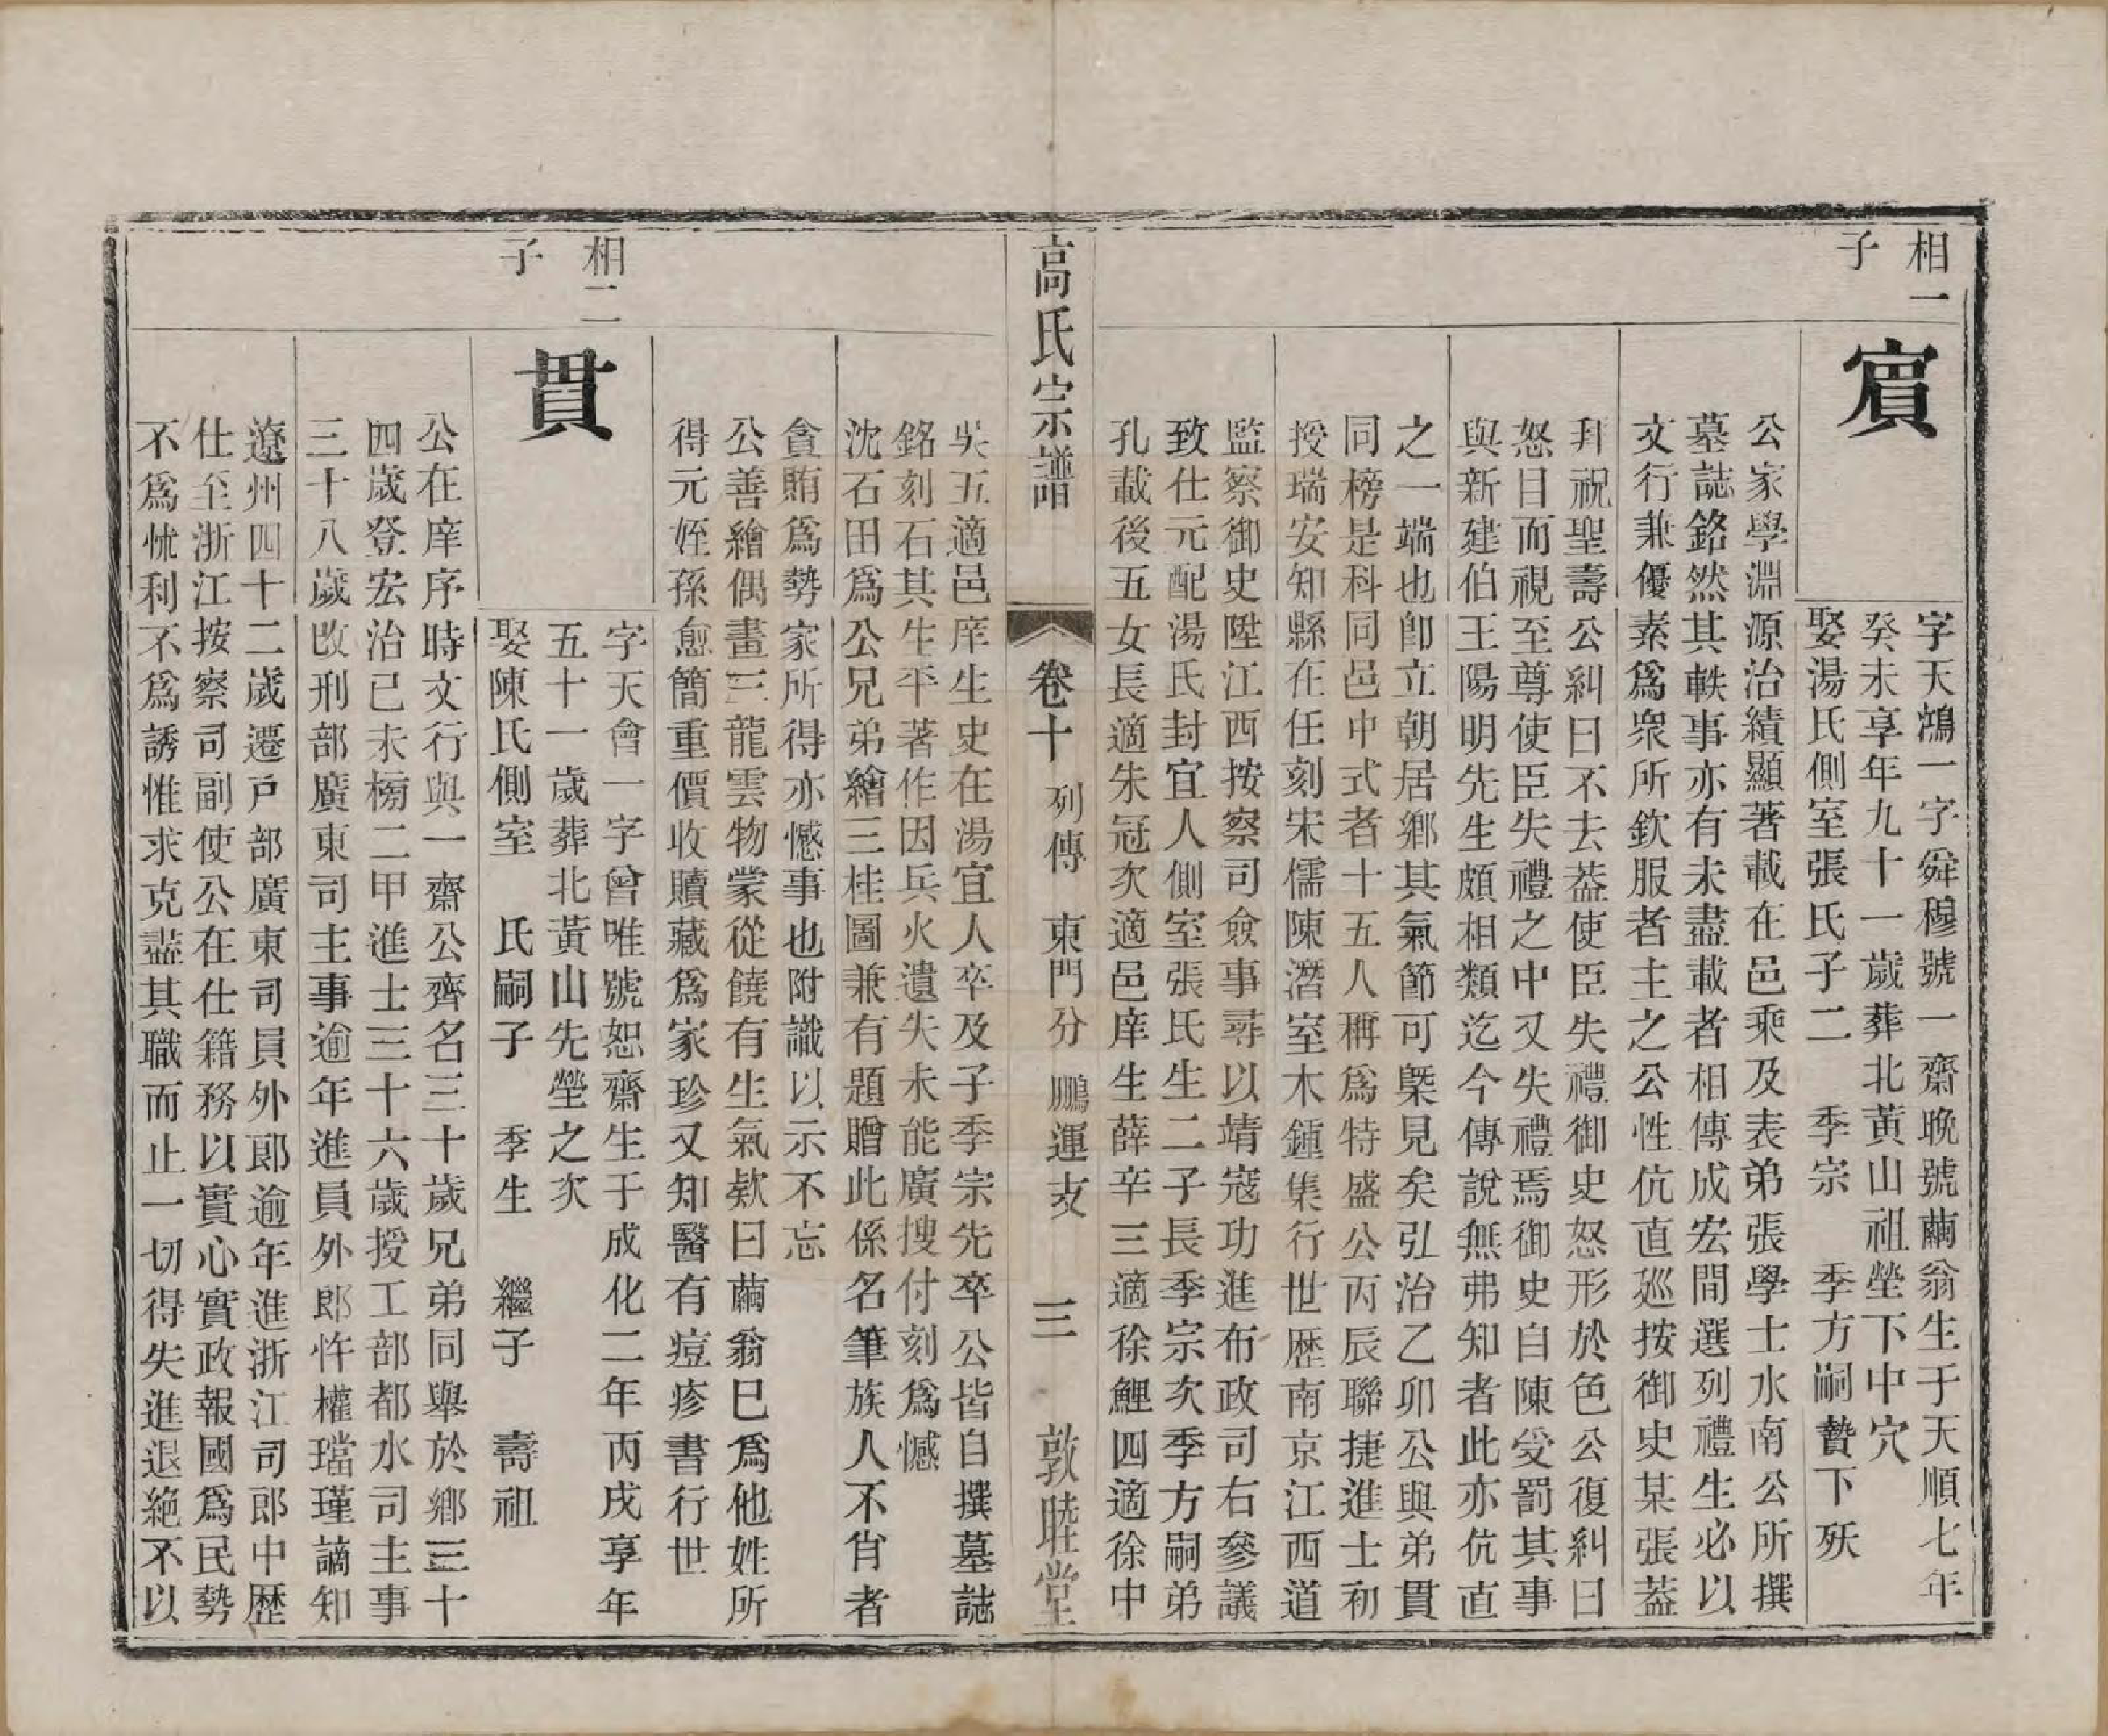 相一
子
賔
字天鴻一字舜穆號一齋晩號繭翁生于天順七年
癸未享年九十一歲葬北黃山祖塋下中穴
娶湯氏側室張氏子二　季宗　季方嗣贄下殀
公家學淵源治績顯著載在邑乘及表弟張學士水南公所撰
墓誌銘然其軼事亦有未盡載者相傳成宏間選列禮生必以
文行兼優素爲衆所欽服者主之公性伉直廵按御史某張葢
拜祝聖壽公糾曰不去葢使臣失禮御史怒形於色公復糾曰
怒目而視至尊使臣失禮之中又失禮焉御史自陳受罰其事
與新建伯王陽明先生頗相類迄今傳說無弗知者此亦伉直
之一端也卽立朝居鄉其氣節可槩見矣弘治乙卯公與弟貫
同榜是科同邑中式者十五人稱爲特盛公丙辰聯捷進士初
授瑞安知縣在任刻宋儒陳潛室木鍾集行世歷南京江西道
監察御史陞江西按察司僉事尋以靖寇功進布政司右參議
致仕元配湯氏封宜人側室張氏生二子長季宗次季方嗣弟
孔載後五女長適朱冠次適邑庠生薛辛三適徐鯉四適徐中
高氏宗譜
卷十　列傳　東門分　鵬運支　三　敦睦堂
吳五適邑庠生史在湯宜人卒及子季宗先卒公皆自撰墓誌
銘刻石其生平著作因兵火遺失未能廣搜付刻爲憾
沈石田爲公兄弟繪三桂圖兼有題贈此係名筆族人不肖者
貪賄爲勢家所得亦憾事也附識以示不忘
公善繪偶畫三龍雲物蒙從饒有生氣欵曰繭翁巳爲他姓所
得元姪孫愈簡重價收贖藏爲家珍又知醫有痘疹書行世
相二
子
貫
字天會一字曾唯號恕齋生于成化二年丙戌享年
五十一歲葬北黃山先塋之次
娶陳氏側室　氏嗣子　季生　繼子　壽祖
公在庠序時文行與一齋公齊名三十歲兄弟同舉於鄉三十
四歲登宏治己未榜二甲進士三十六歲授工部都水司主事
三十八歲改刑部廣東司主事逾年進員外郎忤權璫瑾謫知
遼州四十二歲遷戸部廣東司員外郎逾年進浙江司郎中歷
仕至浙江按察司副使公在仕籍務以實心實政報國爲民勢
不爲怵利不爲誘惟求克盡其職而止一切得失進退絶不以